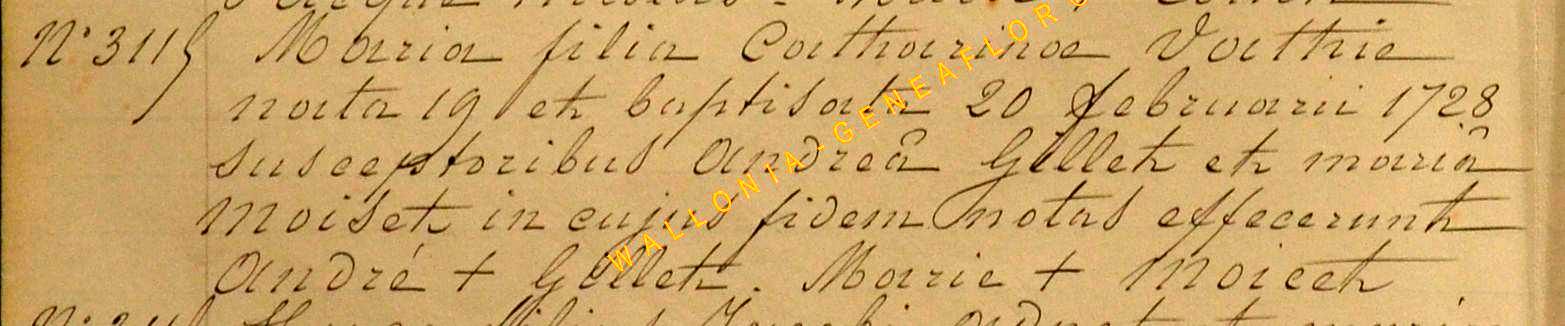 N° 311
Maria filia Catharinae Vathie
nata 19 et baptisata 20 februarii 1728
susceptoribus Andreâ Gillet et mariâ
Moiset in cujus fidem notas effecerunt
André + Gillet. Marie + Moicet
WALLONIA-GENEAFLOR